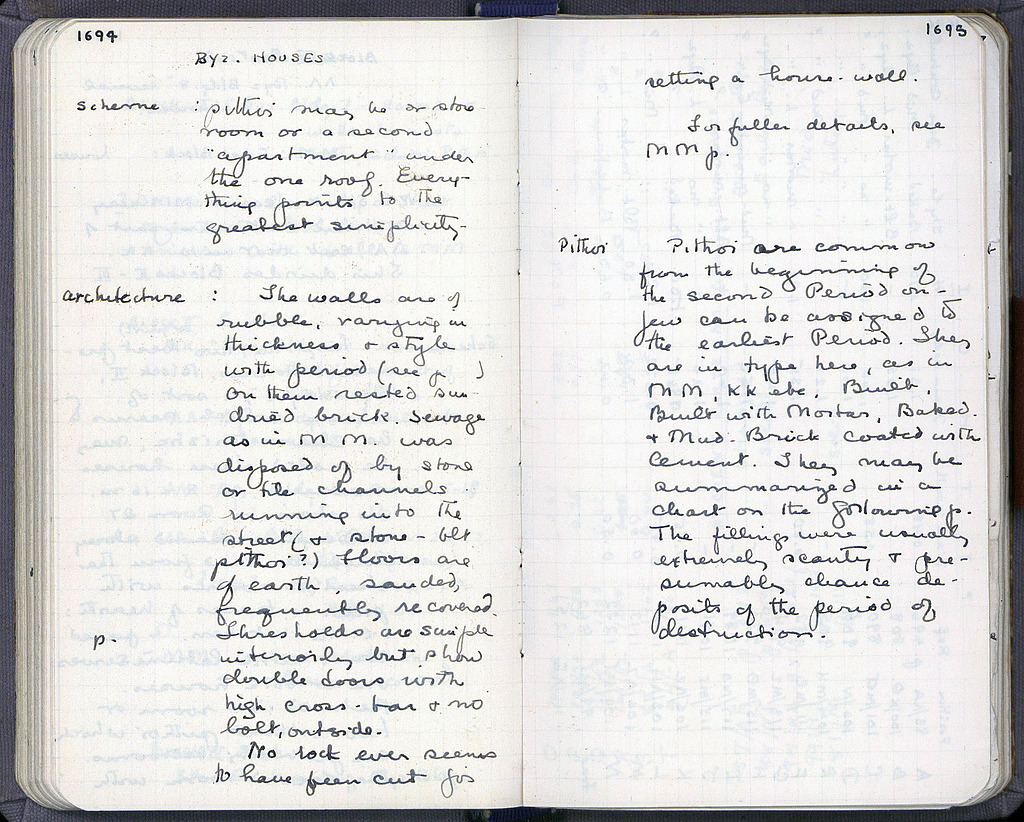 1694
BYZ. HOUSES
scheme pithoi may be or store
room or a second
"apartment" under
the one roof. Every-
thing points to the
greatest simplicity.
architecture : The walls are of
rubble, varying in
thickness & style
with period (see p )
On them rested sun-
dried brick. Sewage
as in MM. was
disposed of by stone
or tile channels
running into the
street (& stone-blt
pithoi?) Floors are
of earth, sanded,
frequently recovered.
p. Thresholds are simple
interiorly but show
double doors with
high cross-bar & no
bolt, outside.
No rock ever seems
to have been cut for
1695
setting a house-wall.
For fuller details, see
MM p.
Pithoi Pithoi are common
from the beginning of
the second Period on-
few can be assigned to
the earliest Period. They
are in type here, as in
MM, KK etc, Built,
Built with Mortar, Baked.
& Mud-Brick coated with
Cement. They may be
summarized in a
chart on the following p.
The fillings were usually
extremely scanty & pre-
sumably chance de-
posits of the period of
destruction.